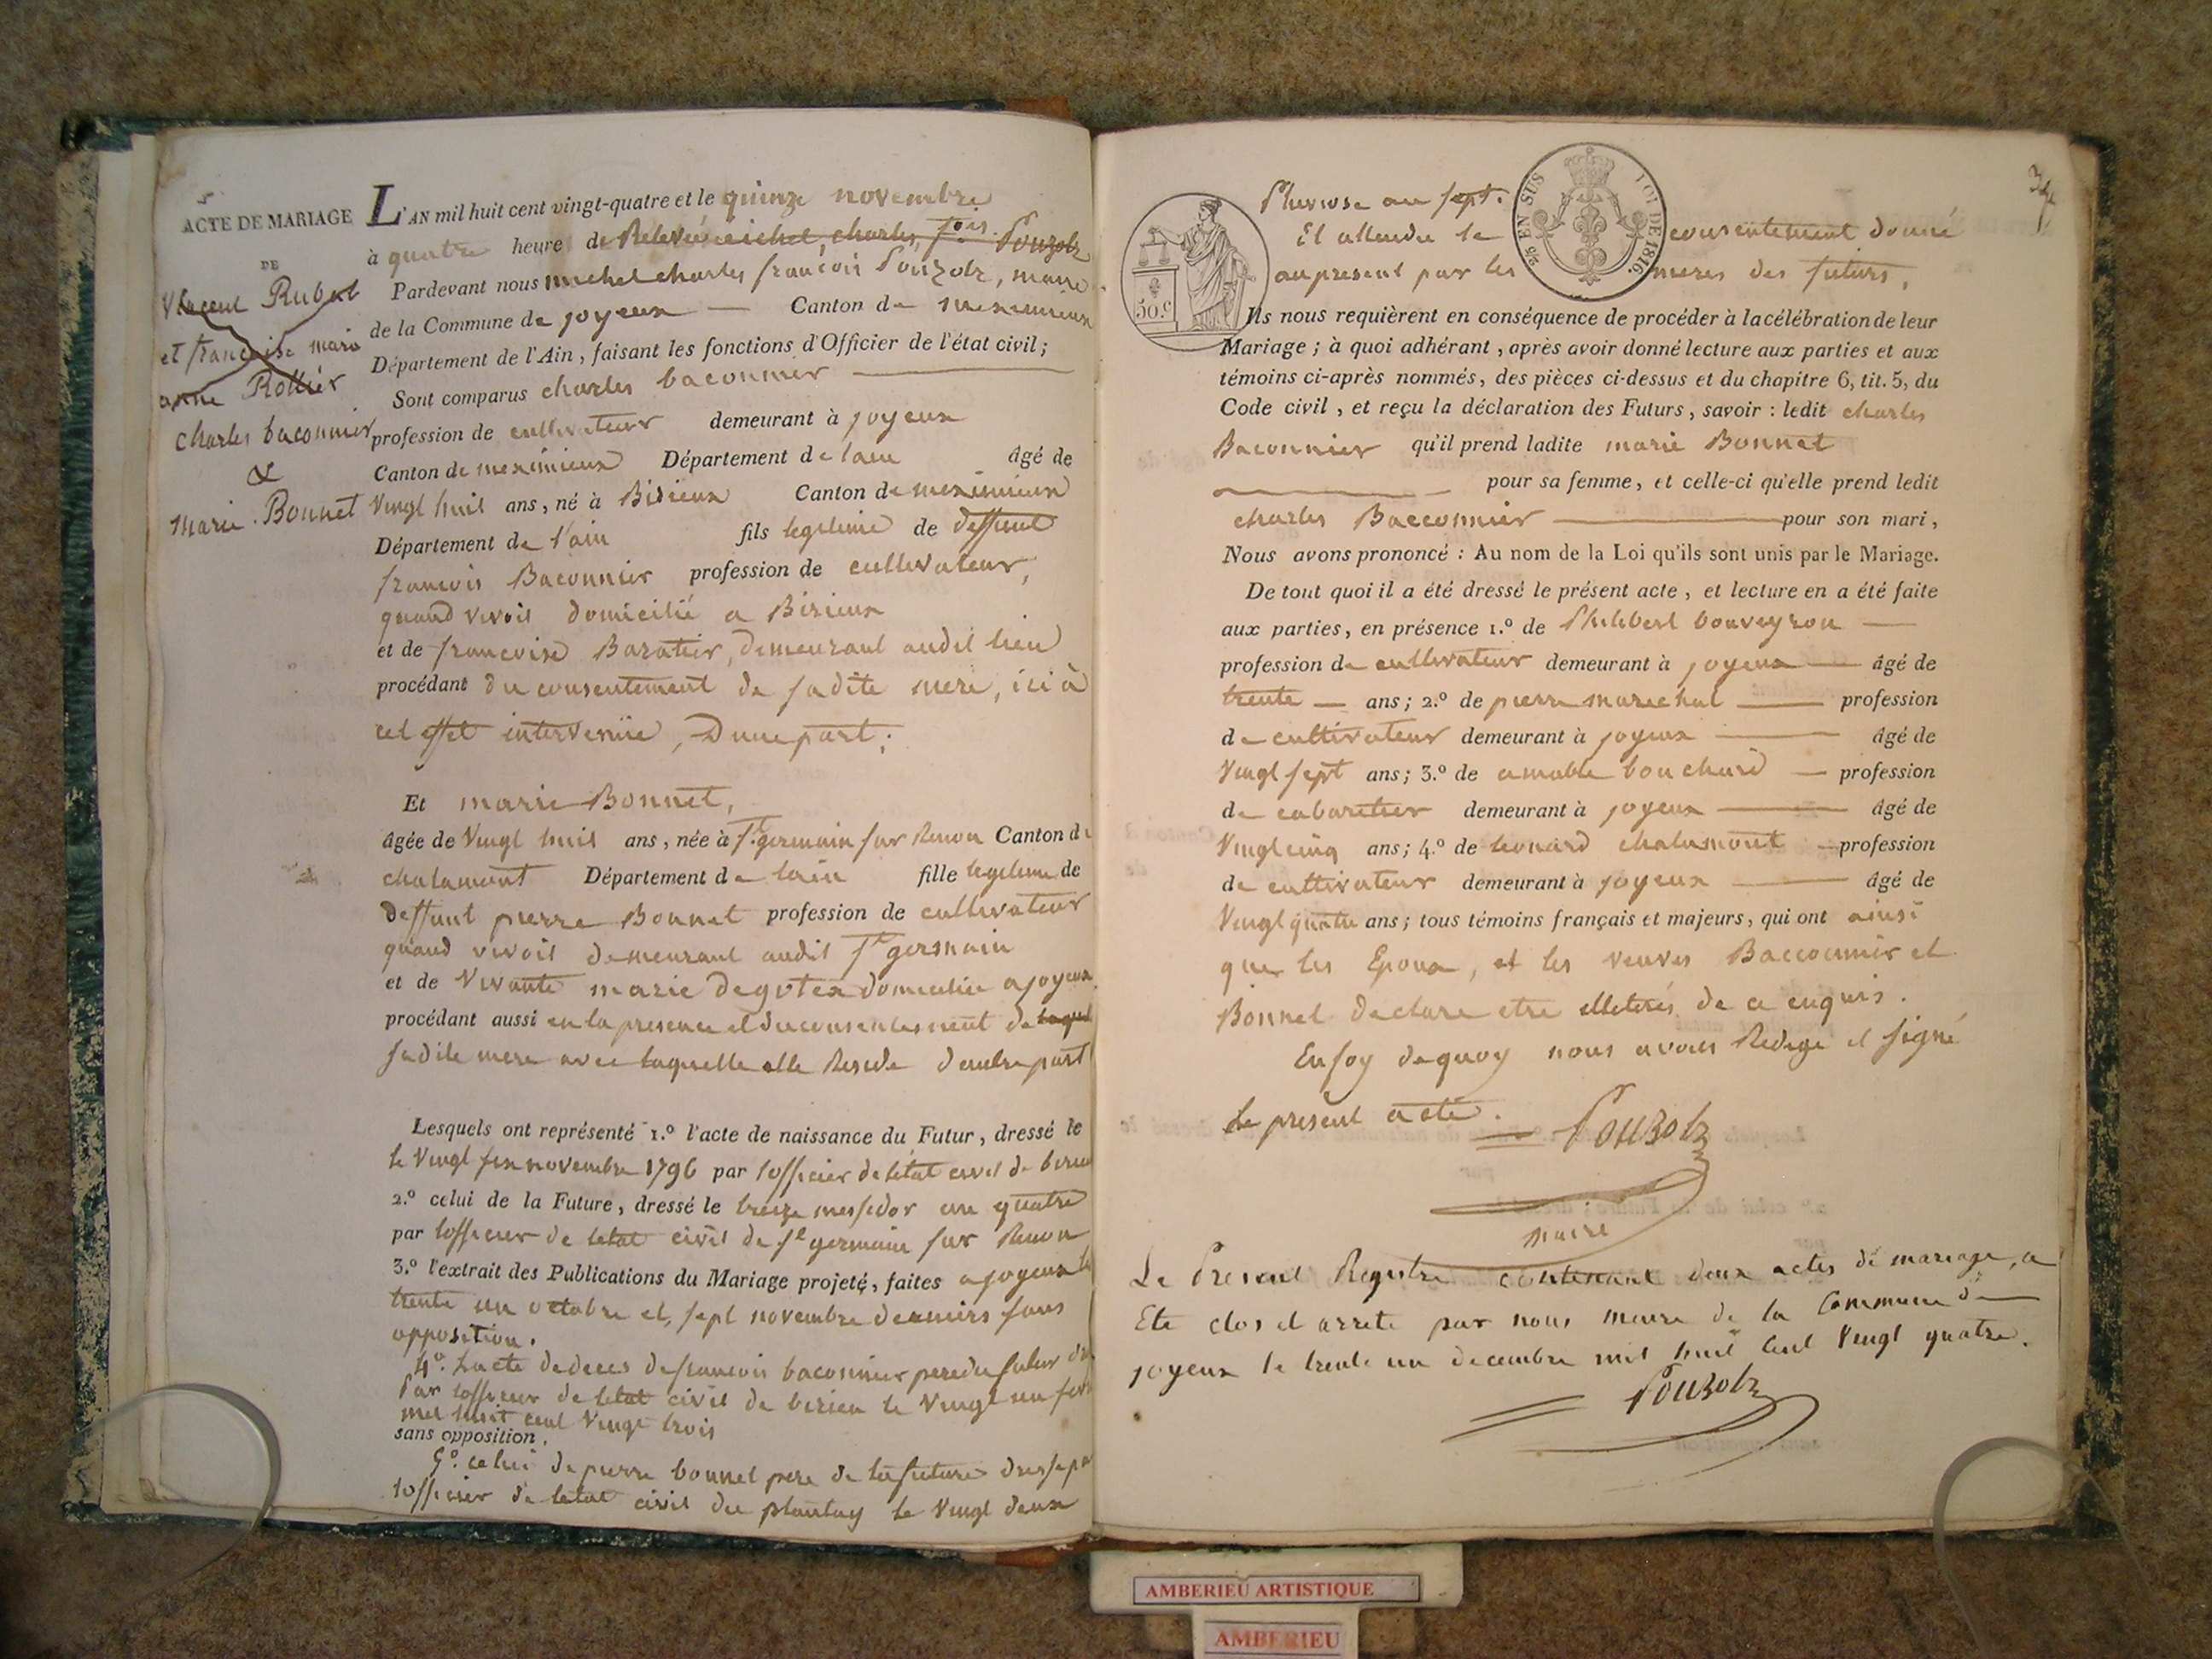 ACTE DE MARIAGE
DE
Vincent Rubat
et françoise marie
anne Rollier
charles baconnier
&
marie Bonnet
L'AN mil huit cent vingt-quatre et le quinze novembre
à quatre heure de Relevé michel, charles, fois Pouzolz
Pardevant nous michel charles françois Pouzolz, maire
de la Commune de joyeux — Canton de meximieux
Département de l'Ain, faisant les fonctions d'Officier de l'état civil;
Sont comparus charles baconnier
profession de cultivateur demeurant à joyeux
Canton de meximieux Département de lain âgé de
Vingt huit ans, né à Birieux Canton de meximieux
Département de l'ain fils legitime de deffunt
françois Baconnier profession de cultivateur,
quand vivoit domicilié a Birieux
et de françoise Baratier, demeurant audit lieu
procédant du consentement de sadite mere, ici à
cet effet intervenüe, D'une part;
Et marie Bonnet,
âgée de Vingt huit ans, née à St germain sur Renon Canton de
chalamont Département de lain fille legitime de
deffunt pierre Bonnet profession de cultivateur
quand vivoit demeurant audit St germain
et de Vivante marie degotex domiciliée a joyeux
procédant aussi en la presence et du consentement de laquel
sadite mere avec laquelle elle Reside d'autre part
Lesquels ont représenté 1.º l'acte de naissance du Futur, dressé le
le Vingt six novembre 1796 par l'officier de l'état civil de birieu
2.º celui de la Future, dressé le treize messidor an quatre
par l'officier de l'etat civil de St germain sur Renon
3.º l'extrait des Publications du Mariage projeté, faites a joyeux le
trente un octobre et, sept novembre derniers sans
opposition.
4º. L'acte de deces de françois baconnier pere du futur
Par l'officier de l'etat civil de birieu le Vingt un
mil huit cent Vingt trois
sans opposition.
5º. celui de pierre bonnet pere de la future dressé pa
l'officier de l'etat civil du plantay le Vingt deux
Pluviose an sept.
Et attendu le consentement donné
au present par les meres des futurs,
2/2 EN SUS LOI DE 1816.
50.c
Ils nous requièrent en conséquence de procéder à la célébration de leur
Mariage; à quoi adhérant, après avoir donné lecture aux parties et aux
témoins ci-après nommés, des pièces ci-dessus et du chapitre 6, tit. 5, du
Code civil, et reçu la déclaration des Futurs, savoir: ledit charles
Baconnier qu'il prend ladite marie Bonnet
pour sa femme, et celle-ci qu'elle prend ledit
charles Bacconnier — pour son mari,
Nous avons prononcé: Au nom de la Loi qu'ils sont unis par le Mariage.
De tout quoi il a été dressé le présent acte, et lecture en a été faite
aux parties, en présence 1.º de Philibert bouveyron —
profession de cultivateur demeurant à joyeux — âgé de
trente — ans; 2.º de pierre marechal — profession
de cultivateur demeurant à joyeux — âgé de
Vingt sept ans; 3.º de amable bouchard — profession
de cabaretier demeurant à joyeux — âgé de
Vingt cinq ans; 4.º de leonard chalamont — profession
de cultivateur demeurant à joyeux — âgé de
Vingt quatre ans; tous témoins français et majeurs, qui ont ainsi
que les Epoux, et les veuves Bacconnier et
Bonnet declare etre illeterés de ce enquis.
En foy de quoy nous avons Redige et signé
le present acte. Pouzolz
maire
Le Present Registre contenant deux actes de mariage, a
Eté clos et arrete par nous maire de la Commune de
joyeux le trente un decembre mil huit cent Vingt quatre.
Pouzolz
AMBERIEU ARTISTIQUE
AMBERIEU